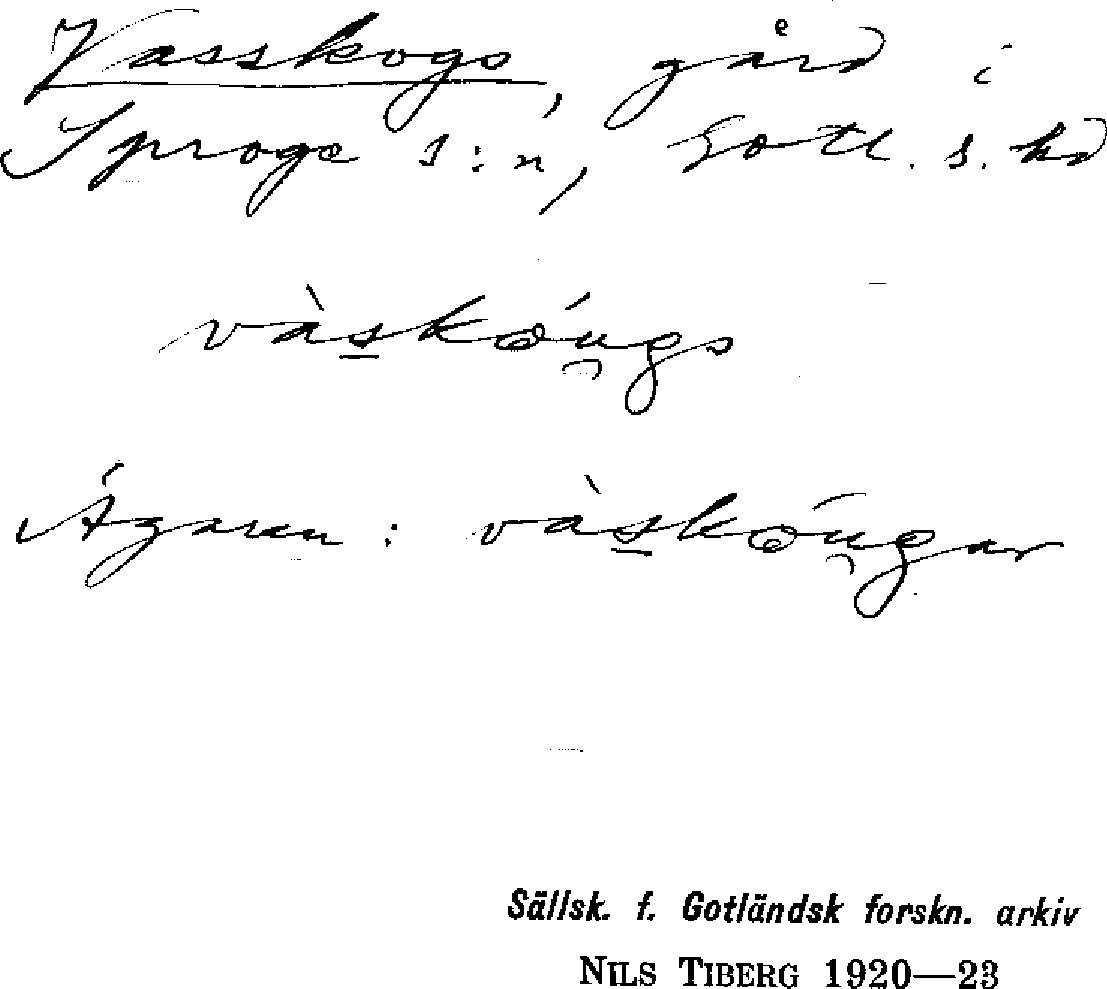 Vasskogs, gård i
Sproge s:n, Gotl. s. hd
vàskóu̯gs
Ägaren: vàskóu̯gar
Sällsk. f. Gotländsk forskn. arkiv
NILS TIBERG 1920—23